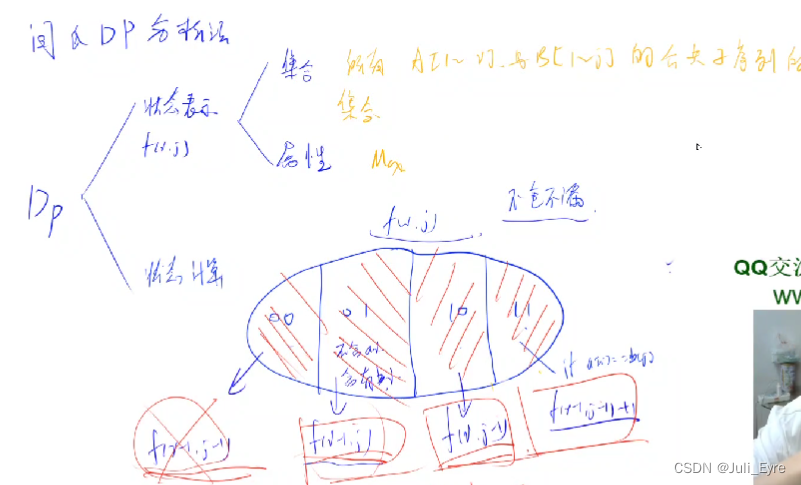 闫氏DP分析法
集合 所有 A[1~i]与B[1~j]的公共子序列的
集合
状态表示
f(i,j)
属性 Max
Dp
f(i,j) 不重不漏
状态计算
QQ交流
WW
00 01 10 11
if a[i]==b[j]
f(i-1,j-1) f(i-1,j) f(i,j-1) f(i-1,j-1)+1
CSDN @Juli_Eyre